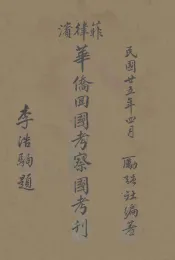 民國廿五年四月
勵誌社編著
菲律濱
華僑回國考察團考刊
李浩駒題